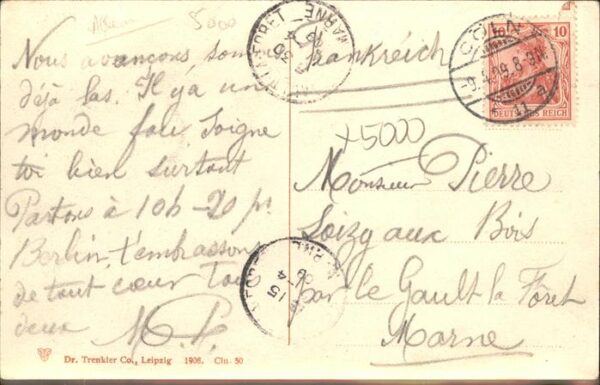 5000
Nous avançons, som
déjà las. Il y a un
monde fou Soigne
toi bien surtout
Partons à 10h-20 pr
Berlin, t'embrassons
de tout cœur Tous
deux M.P.
Frankreich
x5000
Monsieur Pierre
Loizy aux Bois
par le Gault la Forêt
Marne
CÖLN
10
10
DEUTSCHES REICH
MARNE
Dr. Trenkler Co., Leipzig 1906. Cln. 50